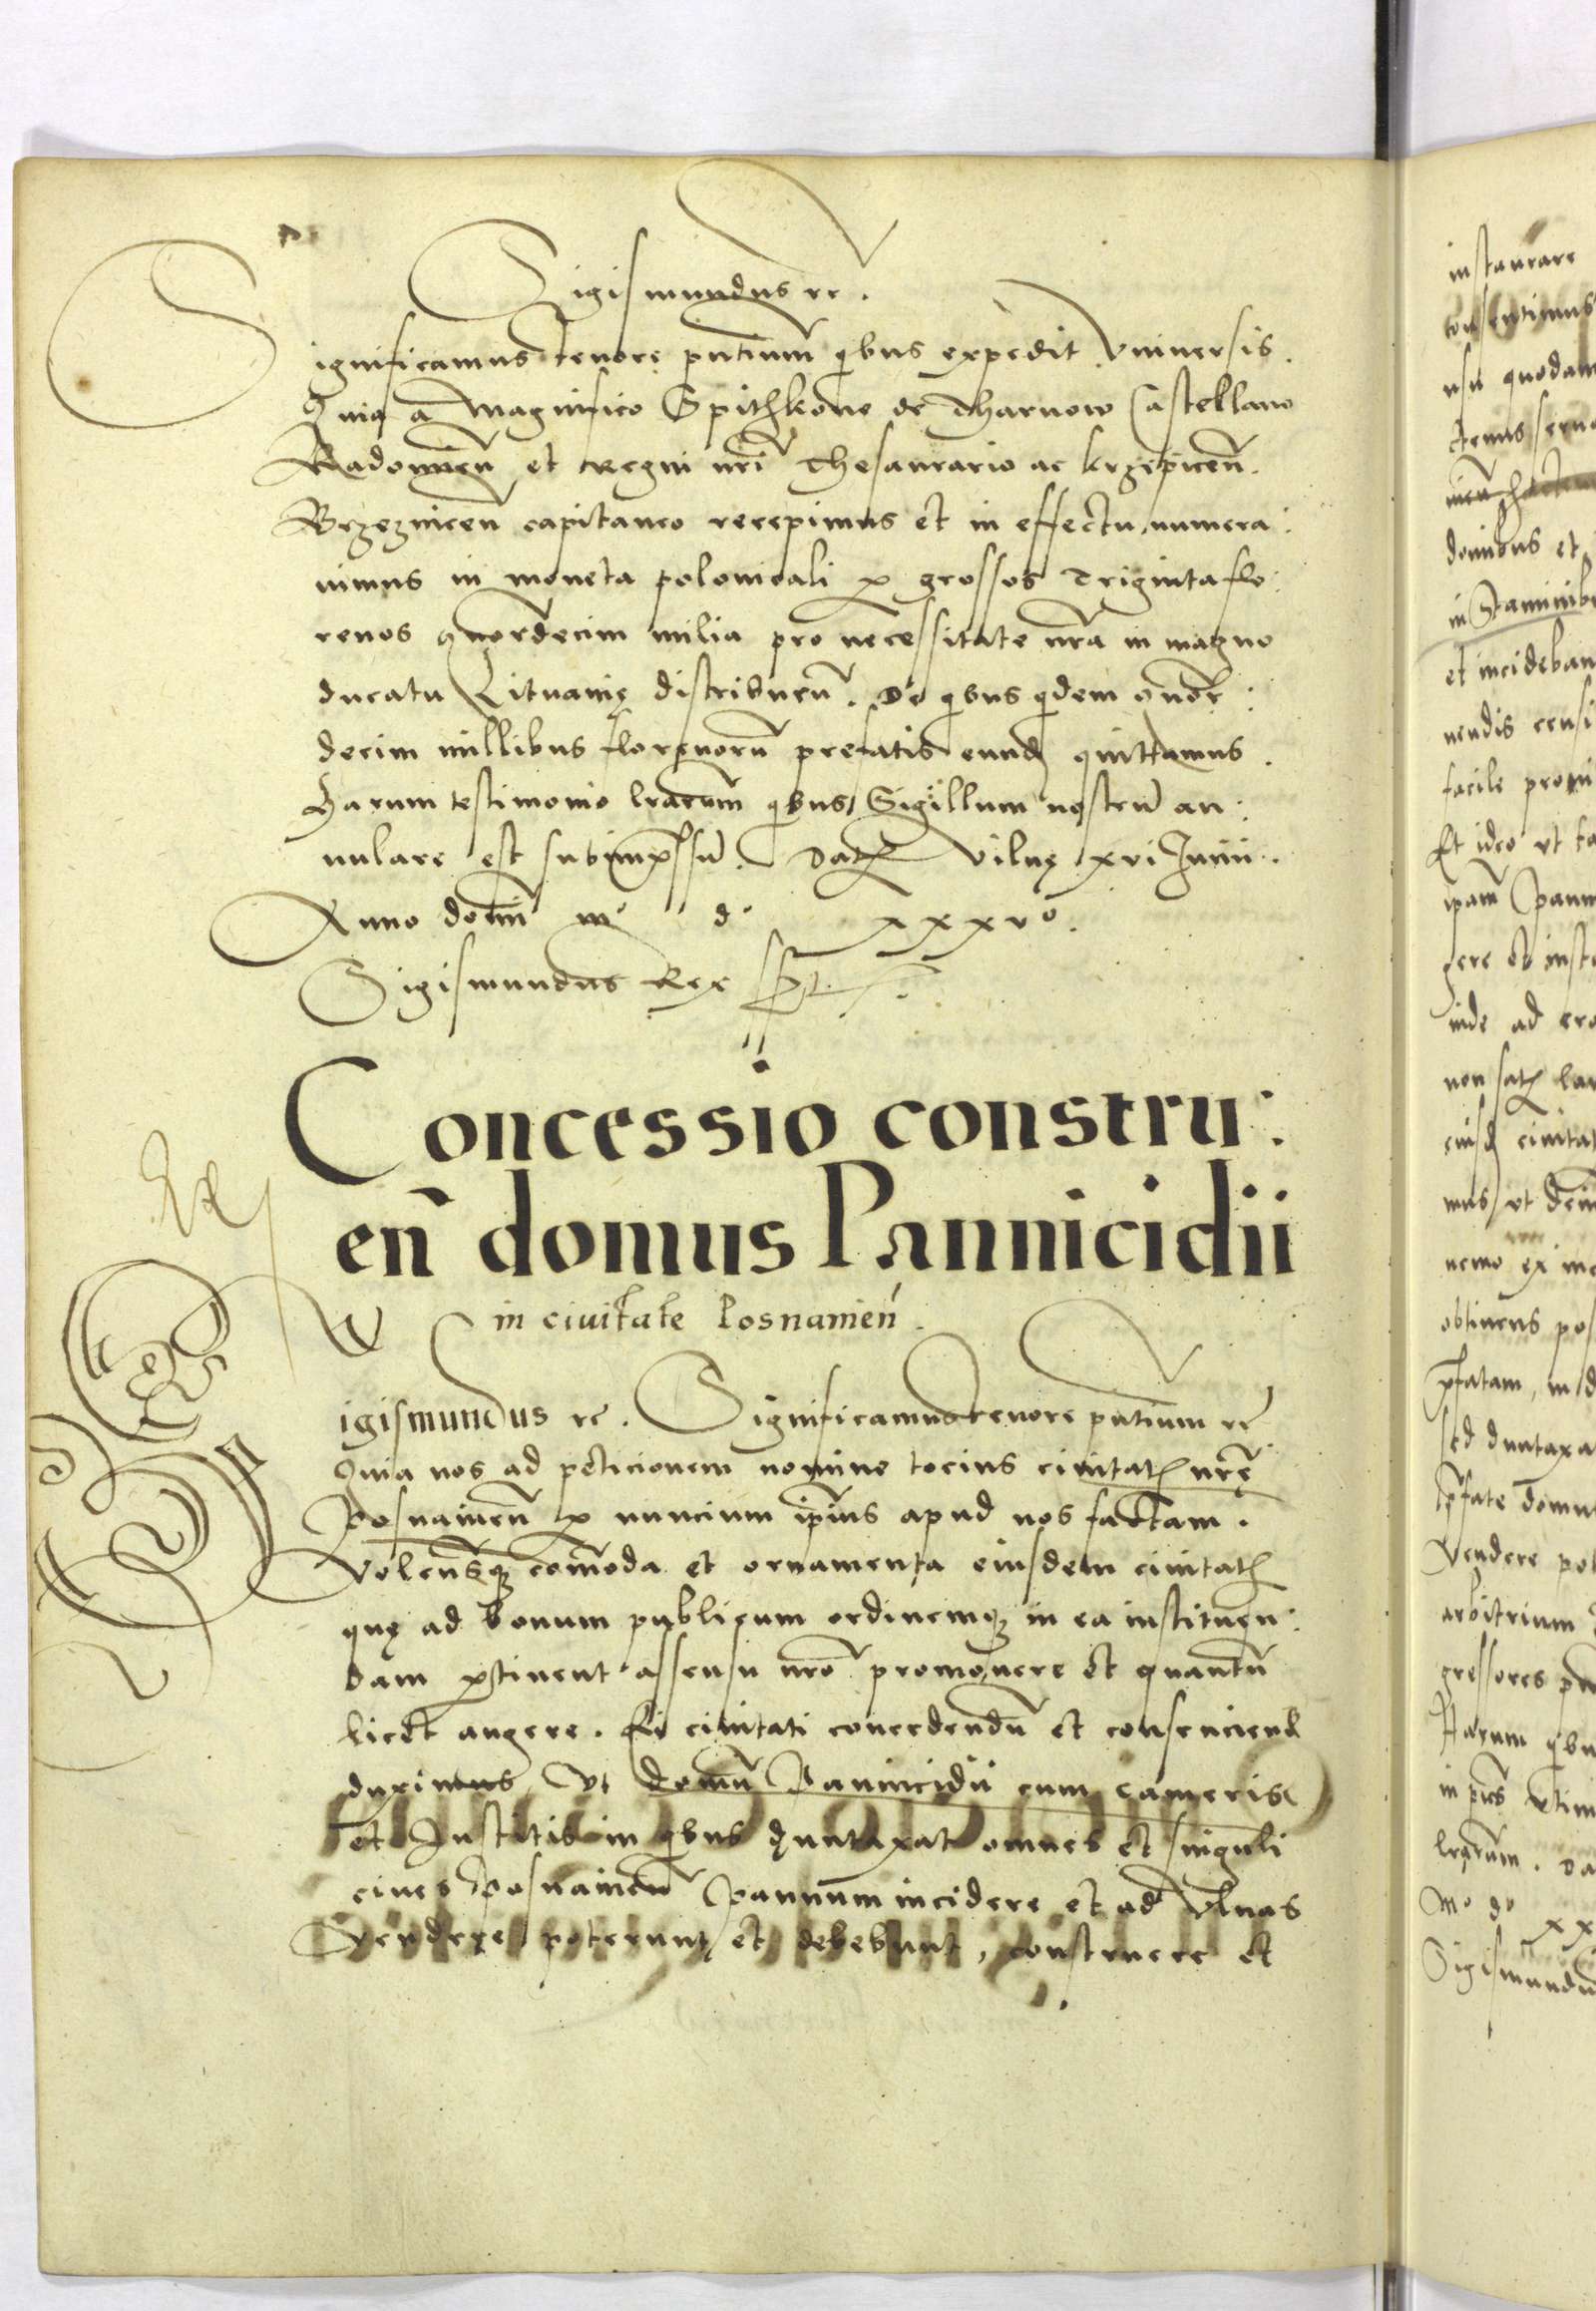 Sigismundus rc.
Significamus tenore pntium qbus expedit vniuersis.
Quia a Magnifico Spithkone de Tharnow Castellano
Radomien et Regni nri Thesaurario ac krzepicen.
Brzeznicen capitaneo recepimus et in effectu numera:
uimus in moneta polonicali p grossos Triginta flo:
renos quordecim milia pro necessitate nra in magno
ducatu Lituanię distribuen. De qbus qdem quor:
decim millibus florenoru prefatis eund quittamus.
Harum testimonio lrarum qbus Sigillum nostru an:
nulare est subimpssu. Dat Vilnę xvi Junii.
Anno domi m° d° xxxv°.
Sigismundus Rex sst.
Concessio constru:
en domus Pannicidii
in ciuitate Posnanien.
Sigismundus rc. Significamus tenore pntium rc
Quia nos ad peticionem nomine tocius ciuitat nrę
Posnanien p nuncium ipius apud nos factam.
Volensq comoda et ornamenta eiusdem ciuitat
quę ad bonum publicum ordinemq in ea instituen:
dam ptinent assensu nro promouere et quantu
licet augere. Ei ciuitati concedendu et consenciend
duximus, Vt domu Pannicidii cum cameris
et Institis in qbus duntaxat omnes et singuli
ciues Posnanien Pannum incidere et ad vlnas
Vendere poterunt et debebunt, construere et
instaurare
consentimus
usu quodam
domibus et
et incideban
nendis censi
facile
Et ideo vt
gere et inst
inde ad
nemo ex
obtinens pos
pfatam, in d
sed duntaxa
pfate domu
Vendere pot
arbitrium
gressores
Harum qbu
lrarum. Da
M° d°
xx
Sigismundu